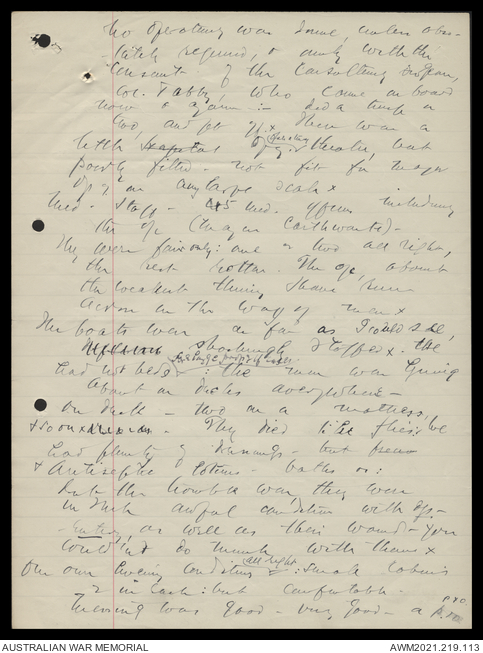 No operating was done, unless abso-
lutely required, & only with the
Consent of the Consulting Surgeon,
Col. Tabby, who came on board
now & again :- did a turn or
two, and got off. x There was a
little hospital operating theatre, but
poorly fitted - not fit for major
on any large scale x
Med. Staff - 5 med. officers including
the o/c (Major Carthwarte) -
They were fair only: one or two all right,
the rest rotten. The o/c about
the weakest thing I have seen
across in the way of men x
The boats were as far as I could see,
shockingly staffed x. We
had not beds : the men were lying
about on decks everywhere -
On deck - two on a mattress,
& so on x - They died like flies: we
had plenty of dressings - but
& Antiseptic lotions - baths :
but the trouble was, they were
in such awful condition with dys-
-entery, as well as their wounds - you
couldn't do much with them x
Our own living conditions all right : small cabins
2 in each: but comfortable.
Messing was good - very good - a P. & O.
AUSTRALIAN WAR MEMORIAL
AWM2021.219.113